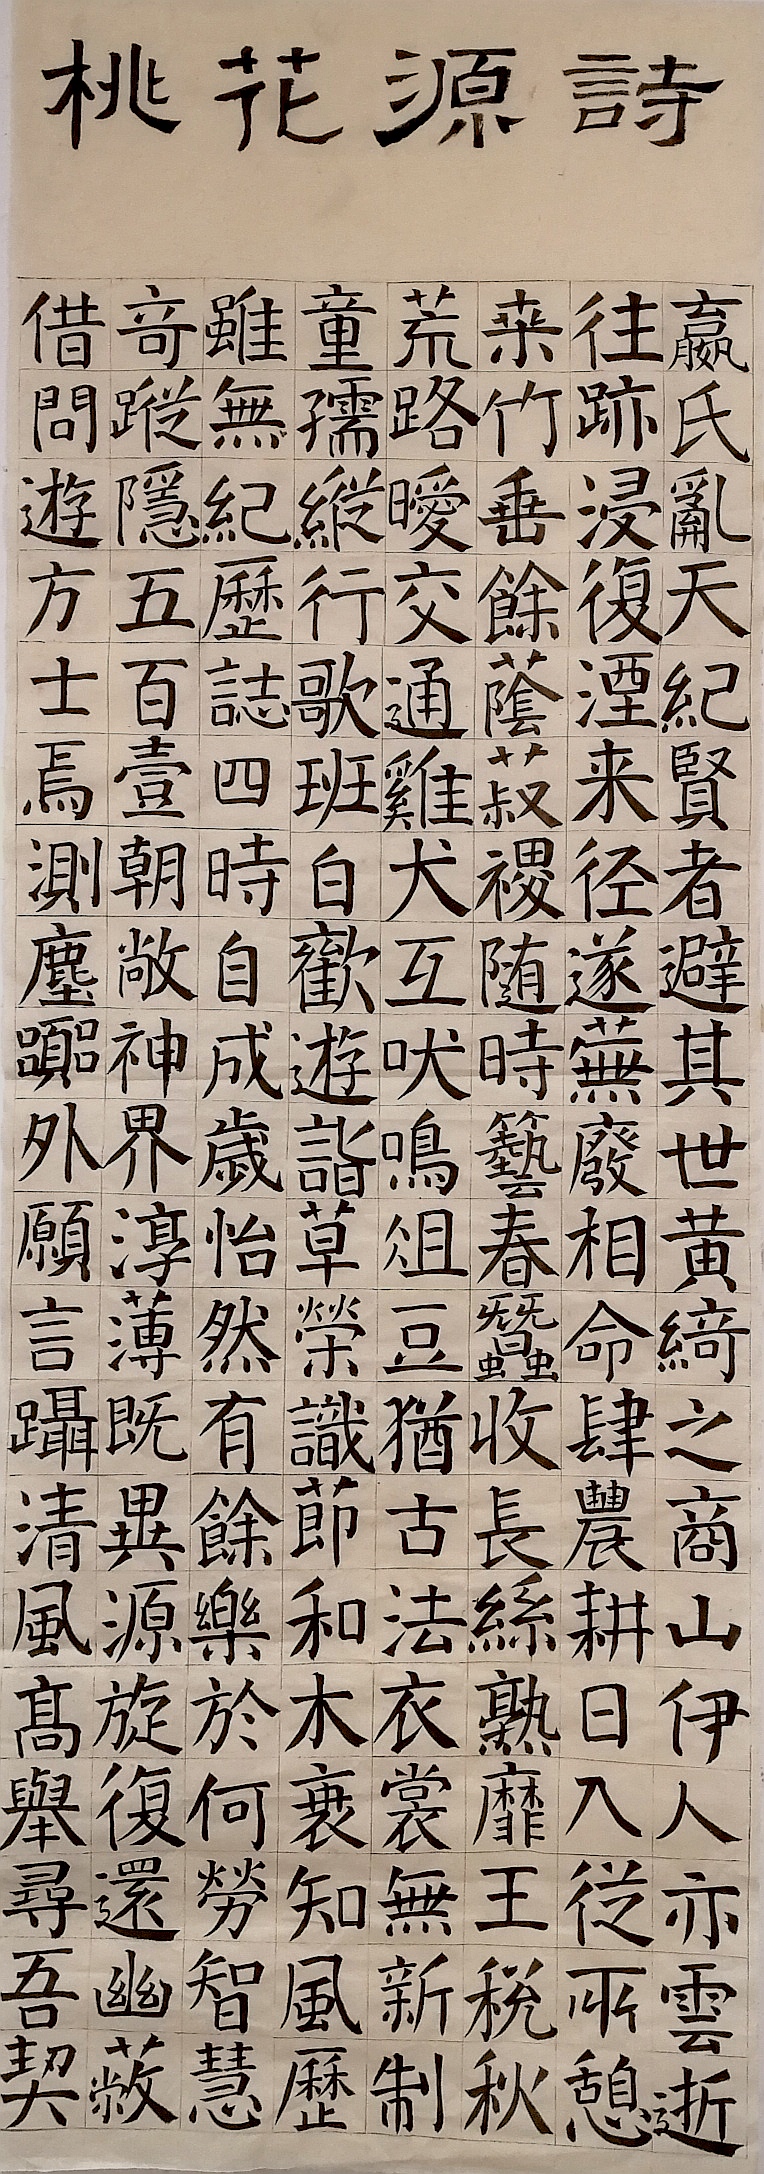 桃花源詩
嬴氏亂天紀賢者避其世黄綺之商山伊人亦雲逝
往跡浸復湮来径遂蕪廢相命肆農耕日入従所憩
桒竹垂餘蔭菽稷随時藝春蠶收長絲熟靡王税秋
荒路曖交通雞犬互吠鳴俎豆猶古法衣裳無新制
童孺縱行歌班白歡遊詣草榮識節和木衰知風歷
雖無紀歷誌四時自成歲怡然有餘樂於何勞智慧
竒蹤隱五百壹朝敞神界淳薄既異源旋復還幽蔽
借問遊方士焉測塵囂外願言躡清風髙舉尋吾契